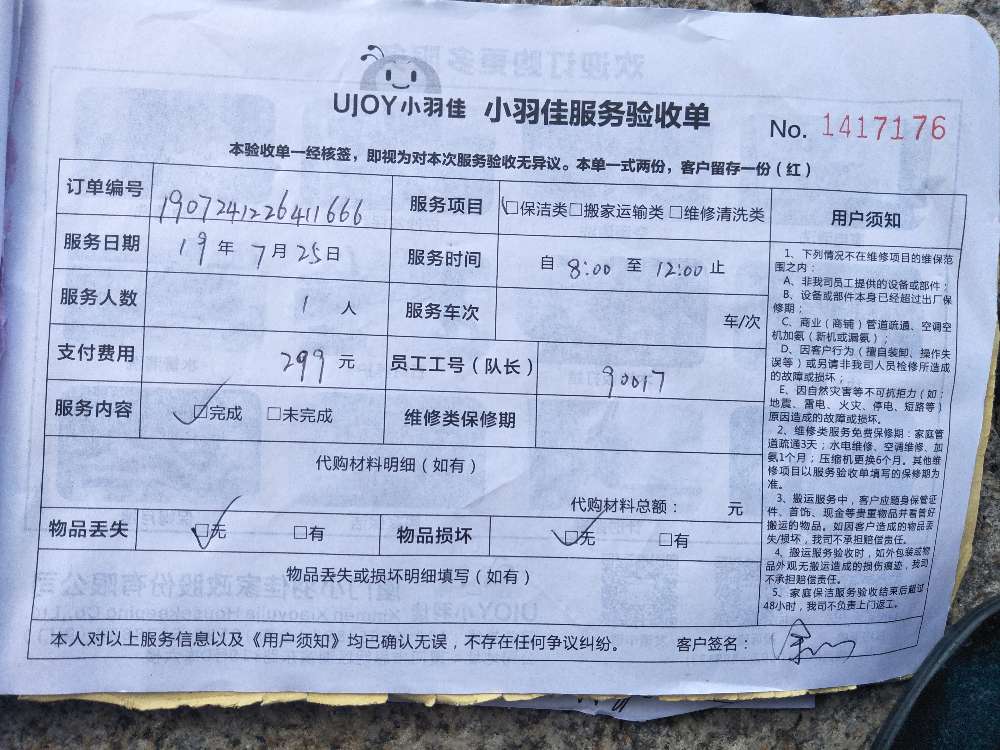 UJOY小羽佳 小羽佳服务验收单
No. 1417176
本验收单一经核签，即视为对本次服务验收无异议。本单一式两份，客户留存一份（红）
订单编号 1907241226411666 服务项目 □保洁类□搬家运输类□维修清洗类
服务日期 19年7月25日 服务时间 自 8:00 至 12:00 止
服务人数 1 人 服务车次 车/次
支付费用 299 元 员工工号（队长） 90017
服务内容 □完成 □未完成 维修类保修期
代购材料明细（如有）
代购材料总额： 元
物品丢失 □无 □有 物品损坏 □无 □有
物品丢失或损坏明细填写（如有）
本人对以上服务信息以及《用户须知》均已确认无误，不存在任何争议纠纷。 客户签名：
用户须知
1、下列情况不在维修项目的维保范
围之内：
A、非我司员工提供的设备或部件；
B、设备或部件本身已经超过出厂保
修期；
C、商业（商铺）管道疏通、空调空
机加氨（新机或漏氨）；
D、因客户行为（擅自装卸、操作失
误等）或另请非我司人员检修所造成
的故障或损坏；
E、因自然灾害等不可抗拒力（如：
地震、雷电、火灾、停电、短路等）
原因造成的故障或损坏。
2、维修类服务免费保修期：家庭管
道疏通3天；水电维修、空调维修、加
氨1个月；压缩机更换6个月。其他维
修项目以服务验收单填写的保修期为
准。
3、搬运服务中，客户应随身保管证
件、首饰、现金等贵重物品并看管好
搬运的物品。如因客户造成的物品丢
失/损坏，我司不承担赔偿责任。
4、搬运服务验收时，如外包装或物
品外观无搬运造成的损伤痕迹，我司
不承担赔偿责任。
5、家庭保洁服务验收结束后超过
48小时，我司不负责上门返工。